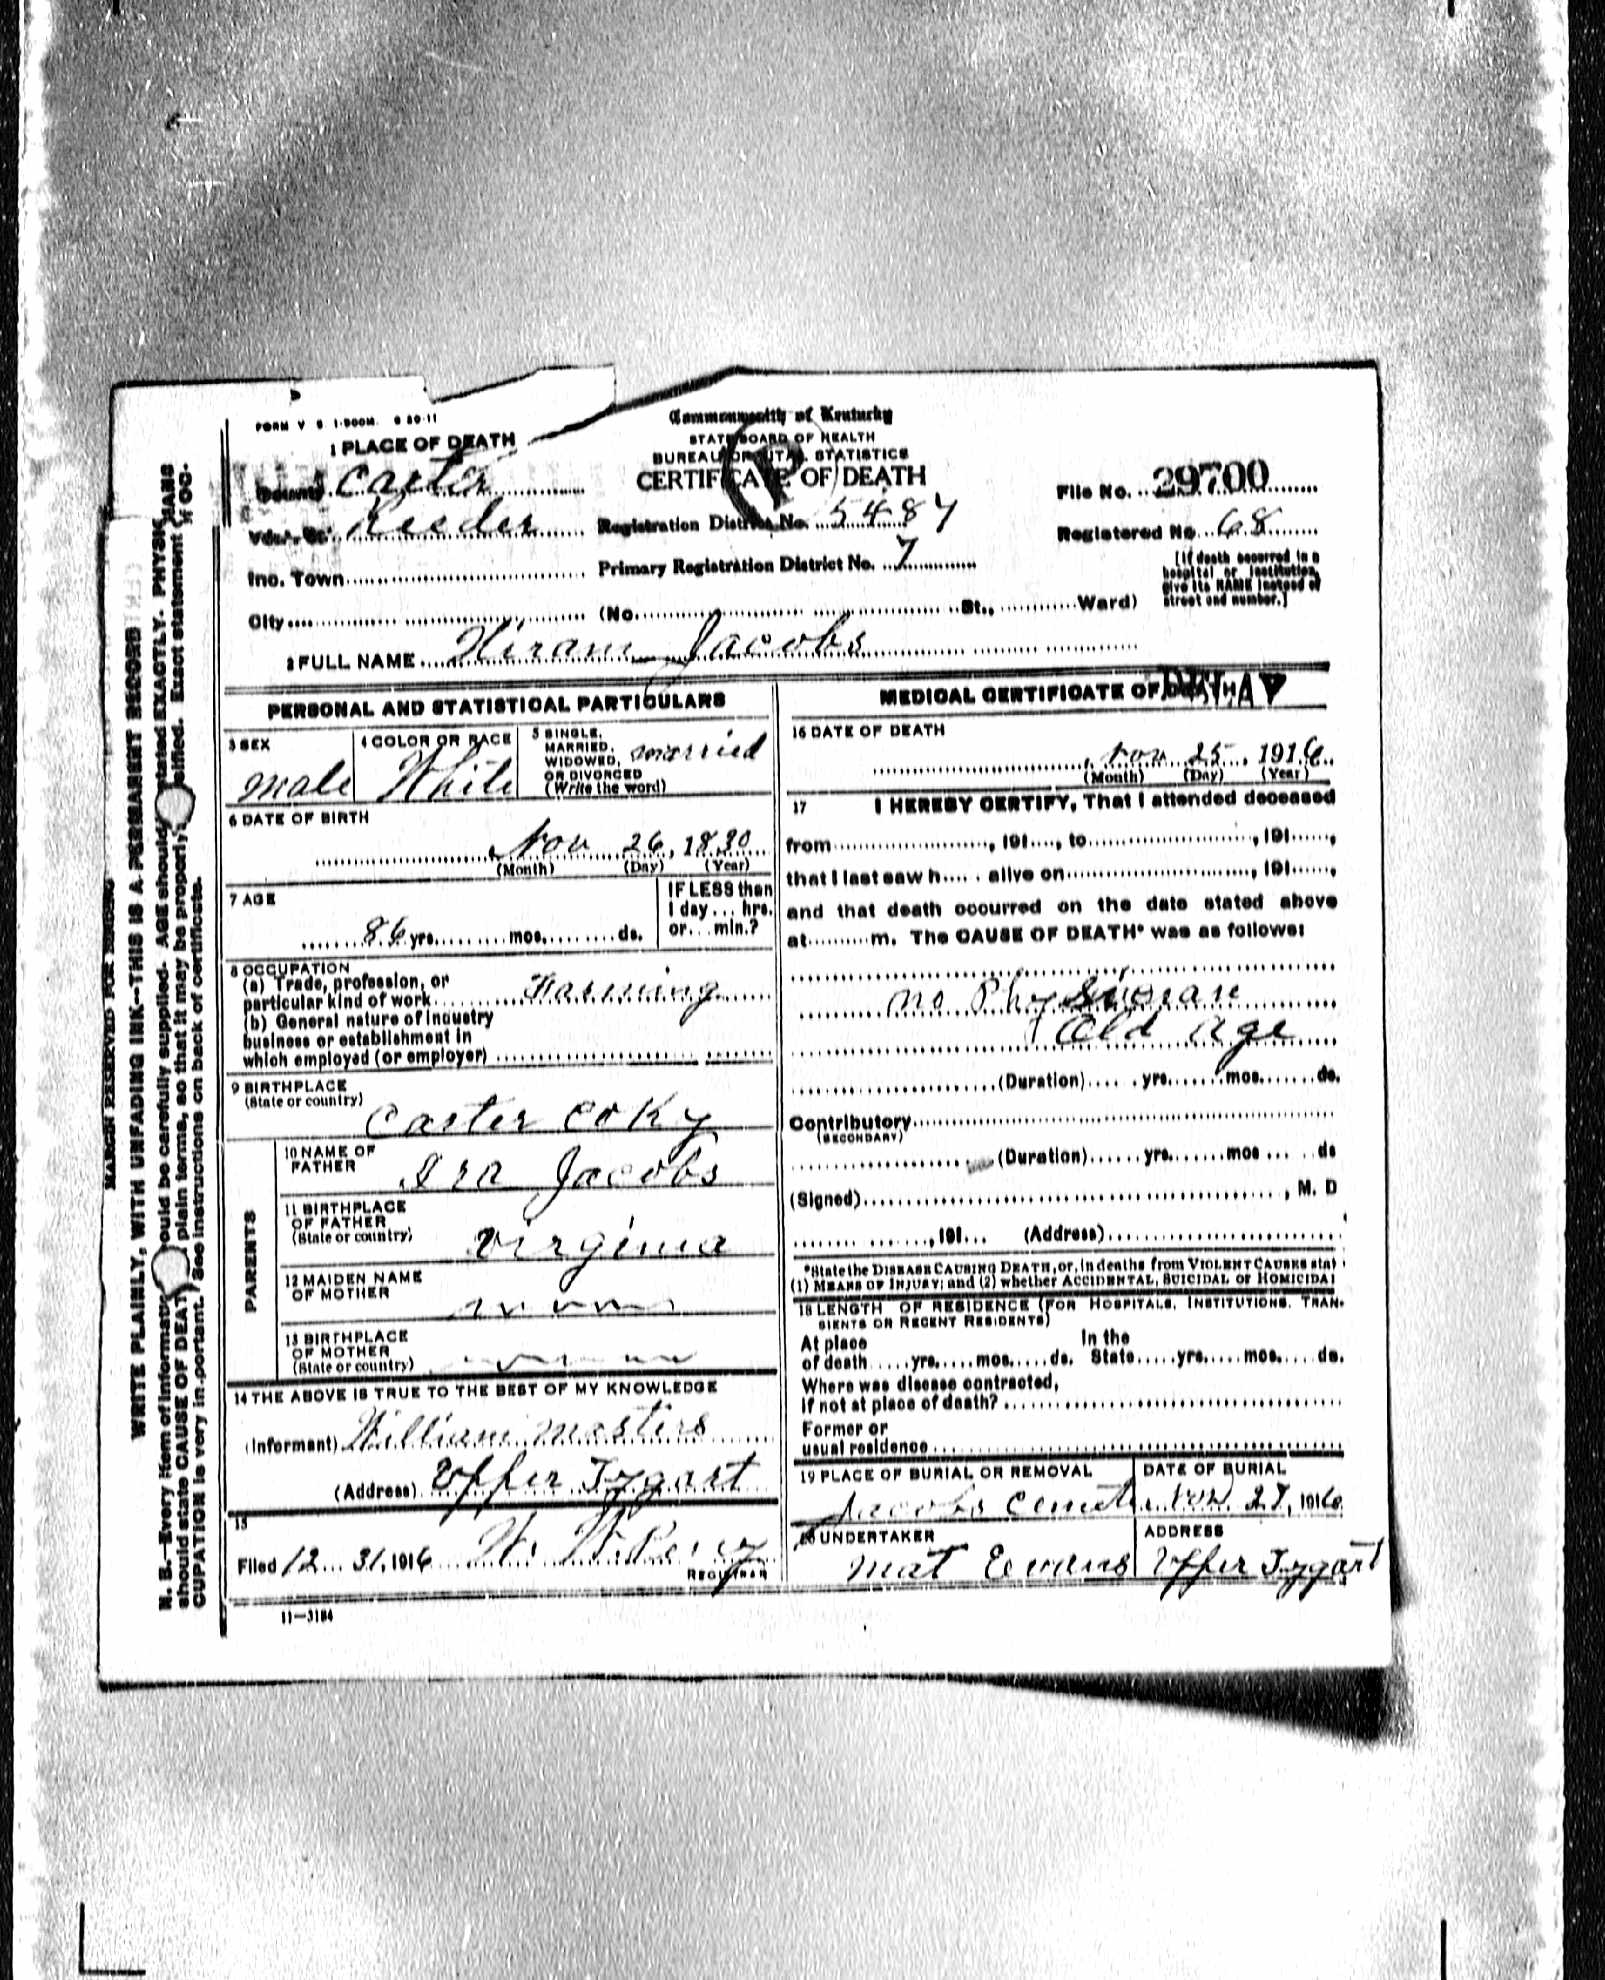 FORM V S 1-500M. 6 20-11
Commonwealth of Kentucky
STATE BOARD OF HEALTH
BUREAU OF VITAL STATISTICS
CERTIFICATE OF DEATH
1 PLACE OF DEATH
County Carter
File No. 29700
Reeder
Registration District No. 5487
Registered No. 68
Inc. Town
Primary Registration District No. 7
[If death occurred in a
hospital or institution,
give its NAME instead of
street and number.]
City (No. St., Ward)
2 FULL NAME Hiram Jacobs
PERSONAL AND STATISTICAL PARTICULARS
3 SEX
male
4 COLOR OR RACE
White
5 SINGLE,
MARRIED,
WIDOWED,
OR DIVORCED
(Write the word)
married
6 DATE OF BIRTH
Nov 26, 1830
(Month) (Day) (Year)
7 AGE
86 yrs. mos. ds.
IF LESS than
1 day... hrs.
or... min.?
8 OCCUPATION
(a) Trade, profession, or
particular kind of work Farming
(b) General nature of industry
business or establishment in
which employed (or employer)
9 BIRTHPLACE
(State or country)
Carter Co Ky
PARENTS
10 NAME OF
FATHER
Ira Jacobs
11 BIRTHPLACE
OF FATHER
(State or country)
Virginia
12 MAIDEN NAME
OF MOTHER
13 BIRTHPLACE
OF MOTHER
(State or country)
14 THE ABOVE IS TRUE TO THE BEST OF MY KNOWLEDGE
(Informant) William Masters
(Address) Upper Tygart
15
Filed 12 31, 1916
REGISTRAR
11—3184
MEDICAL CERTIFICATE OF DEATH
16 DATE OF DEATH
Nov 25, 1916
(Month) (Day) (Year)
17 I HEREBY CERTIFY, That I attended deceased
from , 191 , to , 191 ,
that I last saw h alive on , 191 ,
and that death occurred on the date stated above
at m. The CAUSE OF DEATH* was as follows:
no Physician
Old age
(Duration) yrs. mos. ds.
Contributory
(SECONDARY)
(Duration) yrs. mos ds
(Signed) , M. D
, 191 (Address)
*State the DISEASE CAUSING DEATH, or, in deaths from VIOLENT CAUSES stat
(1) MEANS OF INJURY; and (2) whether ACCIDENTAL, SUICIDAL or HOMICIDAL
18 LENGTH OF RESIDENCE (FOR HOSPITALS, INSTITUTIONS, TRAN-
SIENTS OR RECENT RESIDENTS)
At place In the
of death yrs. mos. ds. State yrs. mos. ds.
Where was disease contracted,
If not at place of death?
Former or
usual residence
19 PLACE OF BURIAL OR REMOVAL
Jacobs Cemet
DATE OF BURIAL
Nov 27, 1916
20 UNDERTAKER
Mat Evans
ADDRESS
Upper Tygart
MARGIN RESERVED FOR BINDING
WRITE PLAINLY, WITH UNFADING INK—THIS IS A PERMANENT RECORD
N. B.—Every item of informat ould be carefully supplied. AGE should tated EXACTLY. PHYSI
should state CAUSE OF DEAT plain terms, so that it may be properly sified. Exact statement OC-
CUPATION is very important. See instructions on back of certificate.